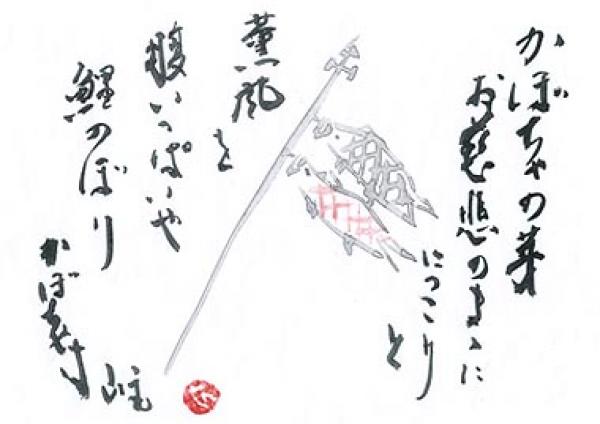 かぼちゃの芽
お慈悲のまゝに
にっこりと
薫風を
腹いっぱいや
鯉のぼり
かぼちゃ